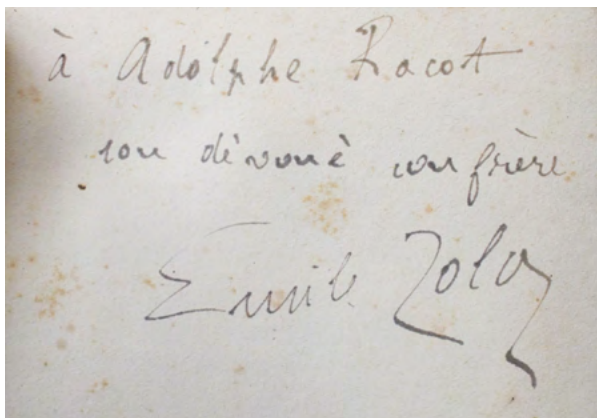 à Adolphe Racot
son dévoué confrère
Emile Zola